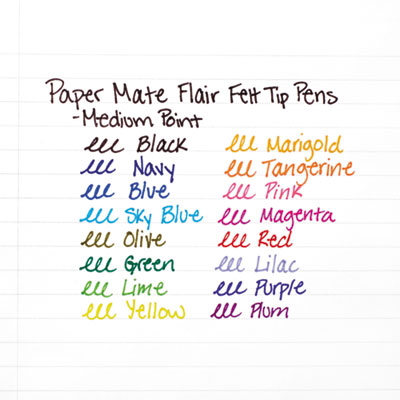 Paper Mate Flair Felt Tip Pens
-Medium Point
lll Black
lll Navy
lll Blue
lll Sky Blue
lll Olive
lll Green
lll Lime
lll Yellow
lll Marigold
lll Tangerine
lll Pink
lll Magenta
lll Red
lll Lilac
lll Purple
lll Plum